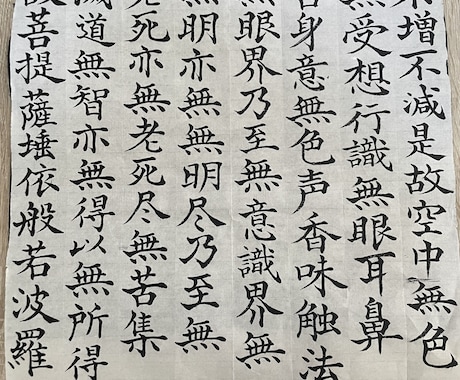 増不減是故空中無色
無受想行識無眼耳鼻
舌身意無色声香味触法
無眼界乃至無意識界無
無明亦無無明尽乃至無
老死亦無老死尽無苦集
滅道無智亦無得以無所得
菩提薩埵依般若波羅